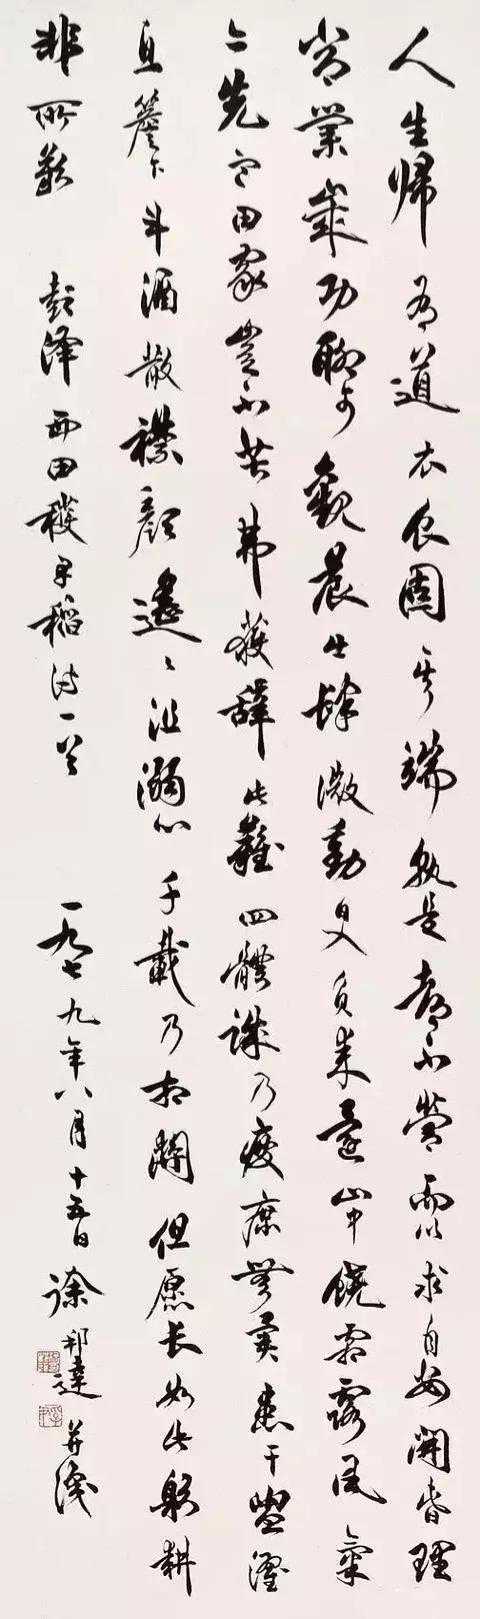 人生帰有道衣食固其端孰是都不營而以求自安開春理
常業歲功聊可觀晨出肆微勤日入負耒還山中饒霜露風氣
亦先寒田家豈不苦弗獲辭此難四體誠乃疲庶無異患干盥濯
息簷下斗酒散襟顔遙〻沮溺心千載乃相關但愿长如此躬耕
非所歎 彭澤西田穫早稻詩一首 一九七九年八月十五日徐邦達并識